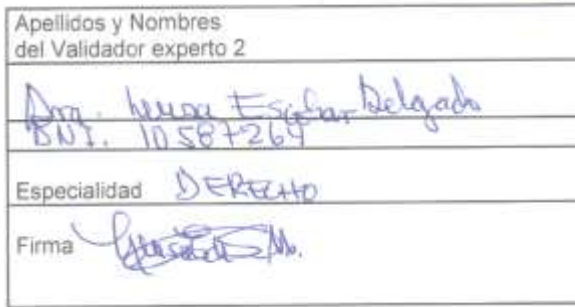 Apellidos y Nombres
del Validador experto 2
Dra. Escobar Delgado
DNI. 10587269
Especialidad DERECHO
Firma